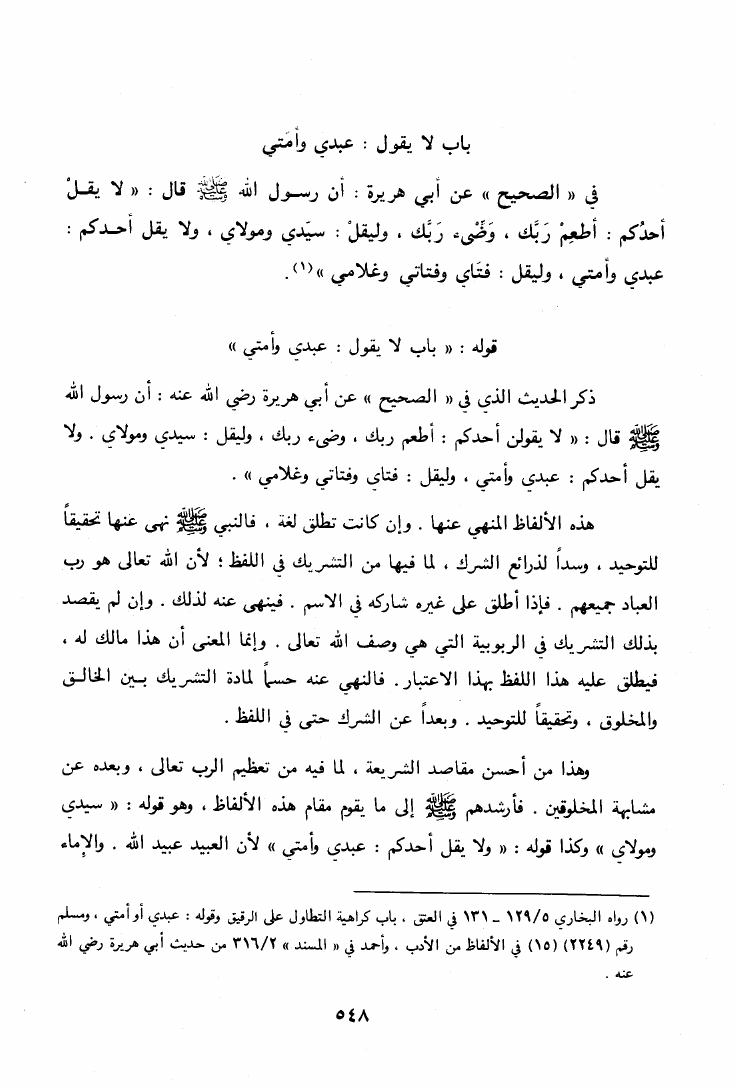 باب لا يقول : عبدي وأمَتي
في « الصحيح » عن أبي هريرة : أن رسول الله ﷺ قال : « لا يقلْ
أحدُكم : أطعِمْ رَبَّك ، وَضِّىء رَبَّك ، وليقلْ : سيّدي ومولاي ، ولا يقل أحدكم :
عبدي وأمتي ، وليقل : فتَاي وفتاتي وغلامي »(١).
قوله : « باب لا يقول : عبدي وأمتي »
ذكر الحديث الذي في « الصحيح » عن أبي هريرة رضي الله عنه : أن رسول الله
ﷺ قال : « لا يقولن أحدكم : أطعم ربك ، وضىء ربك ، وليقل : سيدي ومولاي . ولا
يقل أحدكم : عبدي وأمتي ، وليقل : فتاي وفتاتي وغلامي » .
هذه الألفاظ المنهي عنها . وإن كانت تطلق لغة ، فالنبي ﷺ نهى عنها تحقيقاً
للتوحيد ، وسداً لذرائع الشرك ، لما فيها من التشريك في اللفظ ؛ لأن الله تعالى هو رب
العباد جميعهم . فإذا أطلق على غيره شاركه في الاسم . فينهى عنه لذلك . وإن لم يقصد
بذلك التشريك في الربوبية التي هي وصف الله تعالى . وإنما المعنى أن هذا مالك له ،
فيطلق عليه هذا اللفظ بهذا الاعتبار . فالنهي عنه حسماً لمادة التشريك بين الخالق
والمخلوق ، وتحقيقاً للتوحيد . وبعداً عن الشرك حتى في اللفظ .
وهذا من أحسن مقاصد الشريعة ، لما فيه من تعظيم الرب تعالى ، وبعده عن
مشابهة المخلوقين . فأرشدهم ﷺ إلى ما يقوم مقام هذه الألفاظ ، وهو قوله : « سيدي
ومولاي » وكذا قوله : « ولا يقل أحدكم : عبدي وأمتي » لأن العبيد عبيد الله . والإماء
(١) رواه البخاري ١٢٩/٥ ـ ١٣١ في العتق ، باب كراهية التطاول على الرقيق وقوله : عبدي أو أمتي ، ومسلم
رقم (٢٢٤٩) (١٥) في الألفاظ من الأدب ، وأحمد في « المسند » ٣١٦/٢ من حديث أبي هريرة رضي الله
عنه .
٥٤٨